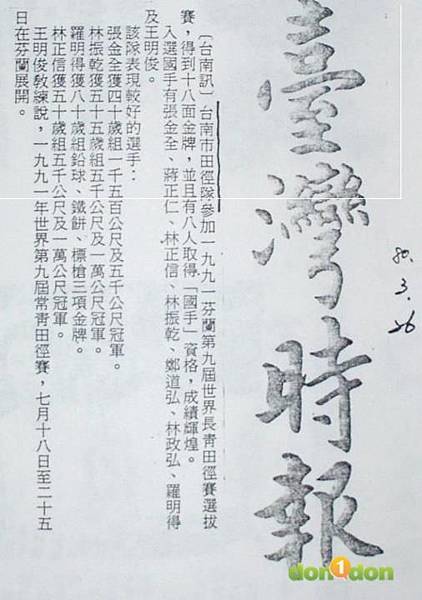 臺灣時報
80.3.26
〔台南訊〕台南市田徑隊參加一九九一芬蘭第九屆世界長青田徑賽選拔
賽，得到十八面金牌，並且有八人取得「國手」資格，成績輝煌。
入選國手有張金全、蔣正仁、林正信、林振乾、鄭道弘、林政弘、羅明得
及王明俊。
該隊表現較好的選手：
張金全獲四十歲組一千五百公尺及五千公尺冠軍。
林振乾獲五十五歲組五千公尺及一萬公尺冠軍。
羅明得獲八十歲組鉛球、鐵餅、標槍三項金牌。
林正信獲五十歲組五千公尺及一萬公尺冠軍。
王明俊教練說，一九九一年世界第九屆常青田徑賽，七月十八日至二十五
日在芬蘭展開。
don1don